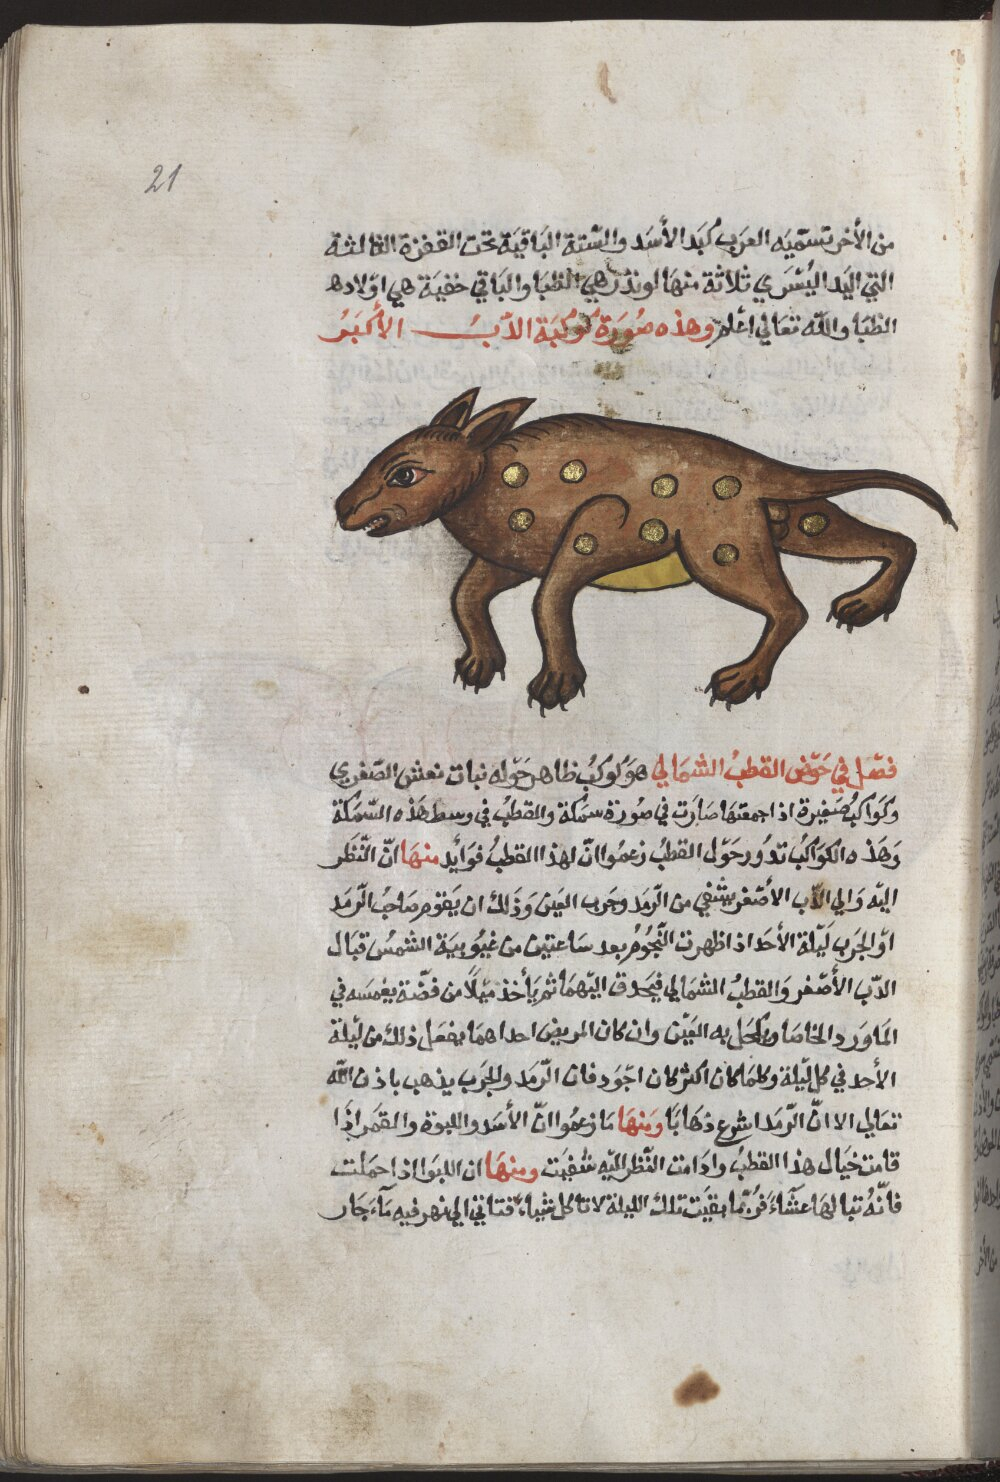 21
من الأخر تسميه العرب كبد الأسد والستة الباقية تحت القفزة الثالثة
التي اليد اليسري ثلاثة منها لونذر هي الظبا والباقي خفية هي اولاده
الظبا والله تعالي اعلم وهذه صورة كوكبة الدب الأكبر
فصل في خوض القطب الشمالي هو كوكب ظاهر حوله نبات نعش الصغري
وكواكب صغيرة اذا جمعتها صارت في صورة سمكة والقطب في وسط هذه السمكة
وهذه الكواكب تدور حول القطب زعموا انّ لهذا القطب فوايد منها انّ النّظر
اليه والي الدّب الأصغر يشفي من الرّمد وجرب العين وذلك ان يقوم صاحب الرّمد
او الجرب ليلة الأحد اذا ظهرت النّجوم بعد ساعتين من غيوبية الشمس قبال
الدّب الأصغر والقطب الشمالي فيحدق اليهما ثم يأخذ ميلاً من فضّة يغمسه في
الماورد الخاصا ويكحل به العين وان كان المريض احداهما يفعل ذلك من ليلة
الأحد في كل ليلة وكلما كان اكثر كان اجود فان الرّمد والجرب يذهب باذن الله
تعالي الا انّ الرّمد اشرع ذهابا ومنها ما زعموا انّ الأسد واللبوة والقمر اذا
قامت خيال هذا القطب وادامت النّظر اليه شفيت ومنها ان اللبوا اذا حملت
فانّه تبا لها عشاء فربّما بقيت تلك الليلة لا تاكل شياء فتاتي الي نهر فيه مآء جار